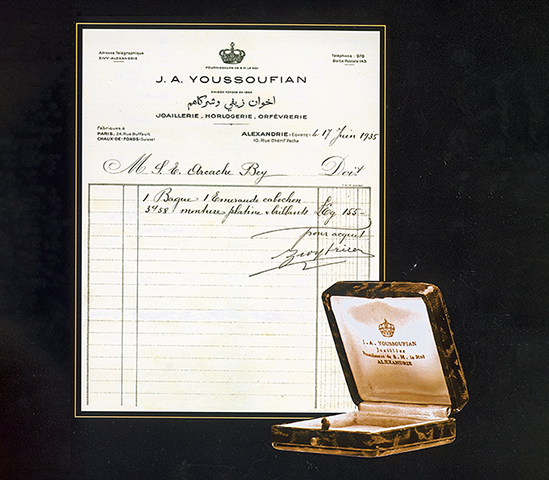 Adresse Télégraphique
ZIVY-ALEXANDRIE
Téléphone : 978
Boîte Postale 143
FOURNISSEURS DE S.M. LE ROI
J. A. YOUSSOUFIAN
MAISON FONDÉE EN
اخوان زيفي وشركاهم
JOAILLERIE, HORLOGERIE, ORFÈVRERIE
Fabriques à
PARIS, 24, Rue Buffault
CHAUX-DE-FONDS (Suisse)
ALEXANDRIE (EGYPTE) le 17 Juin 1935
10, Rue Chérif Pacha
M S. E. Arcache Bey Doit
1 Bague 1 Emeraude cabochon
3ct 58 monture platine & brillants LEg 155 -
pour acquit
Zivy frères
J. A. YOUSSOUFIAN
Joaillier
Fournisseur de S. M. le Roi
ALEXANDRIE